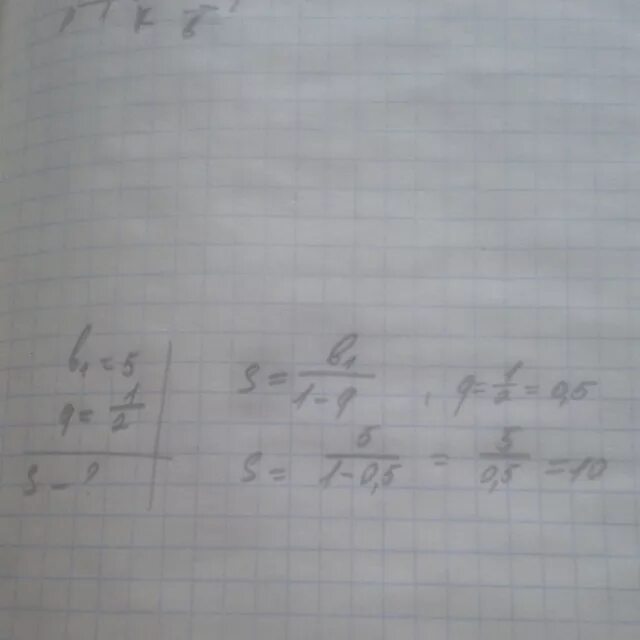 b₁ = 5
q = 1/2
S - ?
S = b₁/(1-q) , q = 1/2 = 0,5
S = 5/(1-0,5) = 5/0,5 = 10